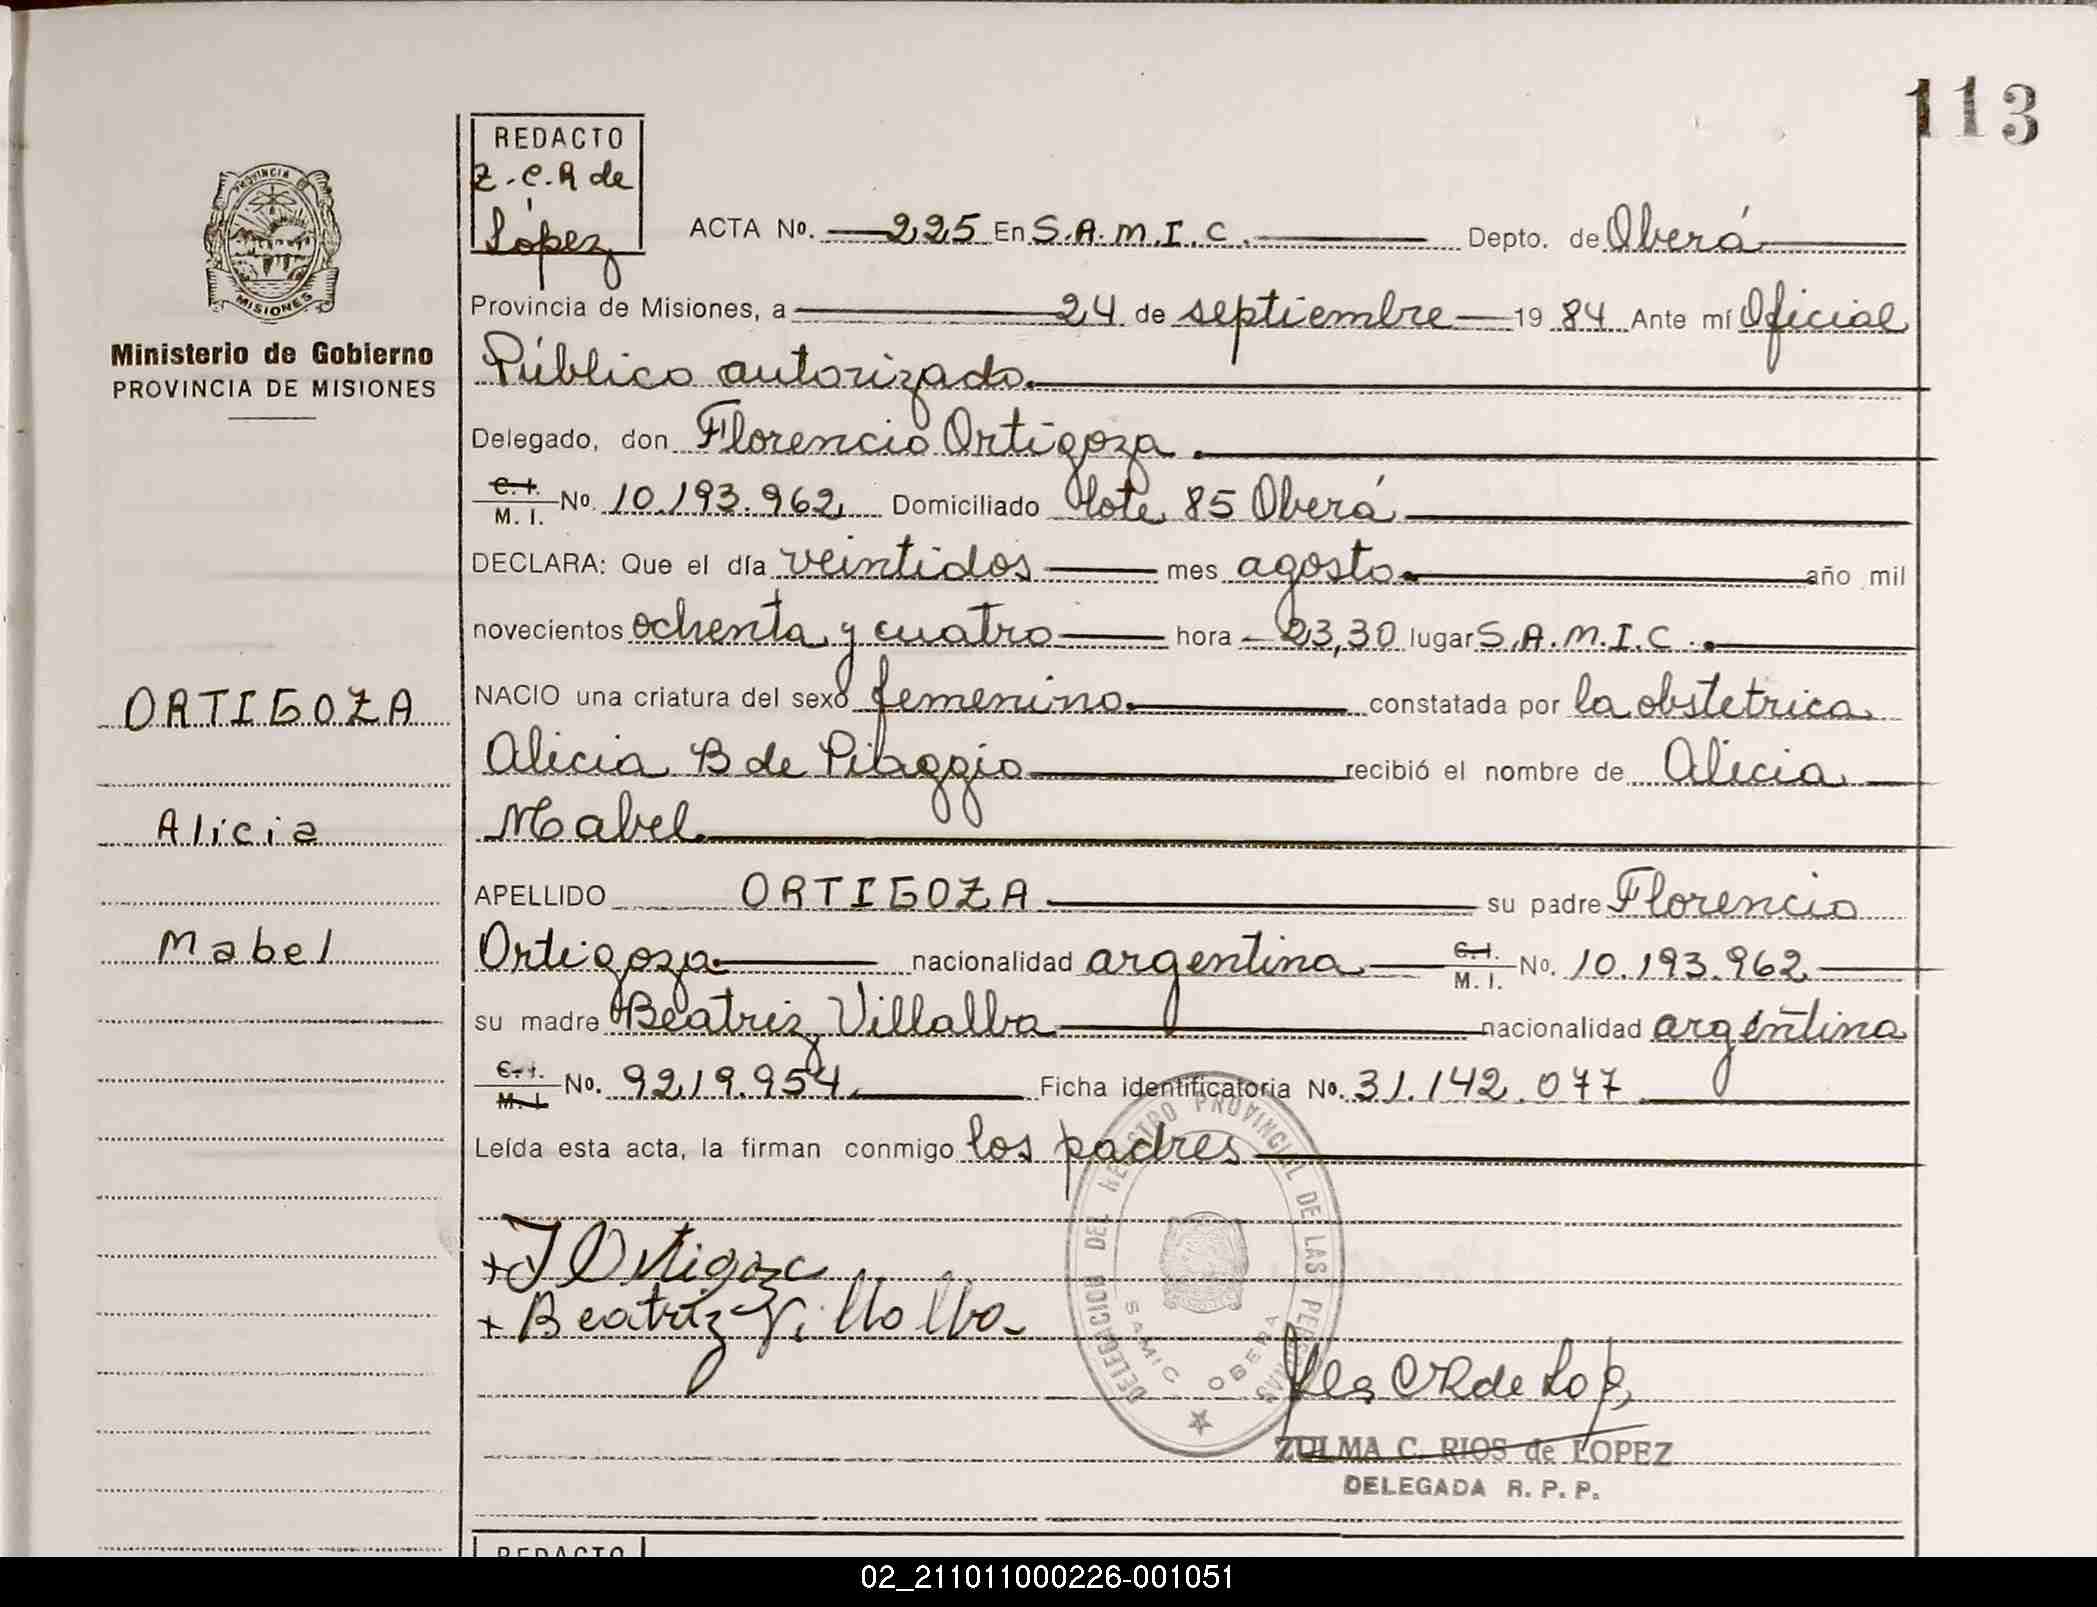 113
REDACTO
Z.C.R de
López
ACTA No. 225 En S.A.M.I.C. Depto. de Oberá
PROVINCIA
MISIONES
Provincia de Misiones, a 24 de septiembre 1984 Ante mí Oficial
Ministerio de Gobierno
PROVINCIA DE MISIONES
Público autorizado.
Delegado, don Florencio Ortigoza.
C. I. M. I. No. 10.193.962 Domiciliado lote 85 Oberá
DECLARA: Que el día veintidos mes agosto. año mil
novecientos ochenta y cuatro hora 23,30 lugar S.A.M.I.C.
ORTIGOZA
NACIO una criatura del sexo femenino. constatada por la obstetrica
Alicia B de Pibaggio recibió el nombre de Alicia
Alicia
Mabel.
APELLIDO ORTIGOZA su padre Florencio
Mabel
Ortigoza. nacionalidad argentina C. I. M. I. No. 10.193.962
su madre Beatriz Villalba nacionalidad argentina
C. I. M. I. No. 9219.954 Ficha identificatoria No. 31.142.077
Leída esta acta, la firman conmigo los padres
DELEGACION DEL REGISTRO PROVINCIAL DE LAS PERSONAS
SAMIC OBERA
+ F Ortigoza
+ Beatriz Villalba
ZULMA C. RIOS de LOPEZ
DELEGADA R. P. P.
REDACTO
02_211011000226-001051